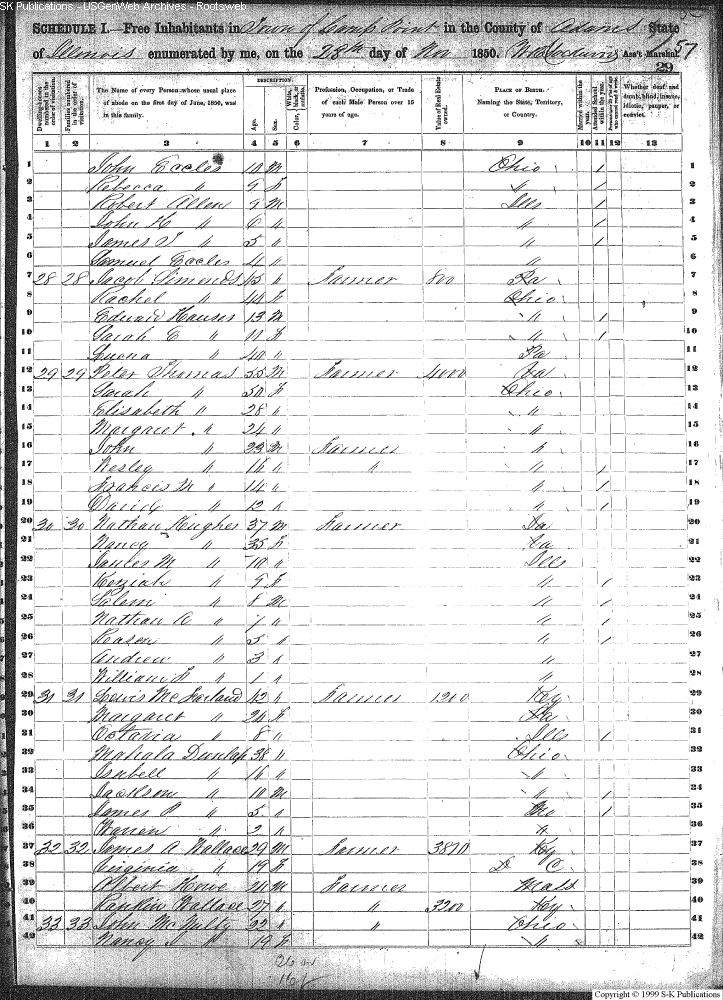 SK Publications - USGenWeb Archives - Rootsweb
SCHEDULE I.—Free Inhabitants in Town of Camp Point in the County of Adams State
of Illinois enumerated by me, on the 28th day of Nov 1850. Ass't Marshal. 57
29
Dwelling-houses numbered in the order of visitation.
Families numbered in the order of visitation.
The Name of every Person whose usual place of abode on the first day of June, 1850, was in this family.
DESCRIPTION.
Age.
Sex.
White, black, or mulatto.
Color,
Profession, Occupation, or Trade of each Male Person over 15 years of age.
Value of Real Estate owned.
PLACE OF BIRTH. Naming the State, Territory, or Country.
Married within the year.
Attended School within the year.
Whether deaf and dumb, blind, insane, idiotic, pauper, or convict.
1 2 3 4 5 6 7 8 9 10 11 12 13
1 John Eccles 10 M Ohio / 1
2 Rebecca " 9 F " / 2
3 Robert Allen 9 M Ills / 3
4 John H " 6 " " / 4
5 James T " 5 " " / 5
6 Samuel Eccles 4 " " 6
7 28 28 Jacob Simonds 45 " Farmer 800 Pa 7
8 Rachel " 44 F Ohio 8
9 Edward Hauser 13 M " / 9
10 Sarah E " 11 F " / 10
11 " 40 " Pa 11
12 29 29 Peter Thomas 55 M Farmer 4000 Va 12
13 Sarah " 50 F Ohio 13
14 Elisabeth " 28 " " 14
15 Margaret " 24 " " 15
16 John " 23 M Farmer " 16
17 Wesley " 16 " " " / 17
18 Francis M " 14 " " / 18
19 David " 12 " " / 19
20 30 30 Nathan Hughes 37 M Farmer 20
21 Nancy " 35 F Va 21
22 James M " 10 " Ills 22
23 Keziah " 9 F " / 23
24 Salem " 8 M " / 24
25 Nathan A " 7 " " / 25
26 Reason " 5 " " / 26
27 Andrew " 3 " " 27
28 William F " 1 " " 28
29 31 31 Lewis McFarland 42 " Farmer 1200 Ky 29
30 Margaret " 20 F 30
31 Octavia " 8 " Ills / 31
32 Mahala Dunlap 38 " Ohio 32
33 Isabell " 16 " " 33
34 Jackson " 10 M " / 34
35 James P " 5 " Mo / 35
36 Warren " 2 " " 36
37 32 32 James A Wallace 29 M Farmer Ky 37
38 Virginia " 19 F D C 38
39 Albert Howe 20 M Farmer Mass 39
40 Rankin Wallace 27 " " 3200 Ky 40
41 33 33 John McNulty 22 " " Ohio 41
42 Nancy J " 19 F " 42
26 m
16 f
Copyright © 1999 S-K Publications